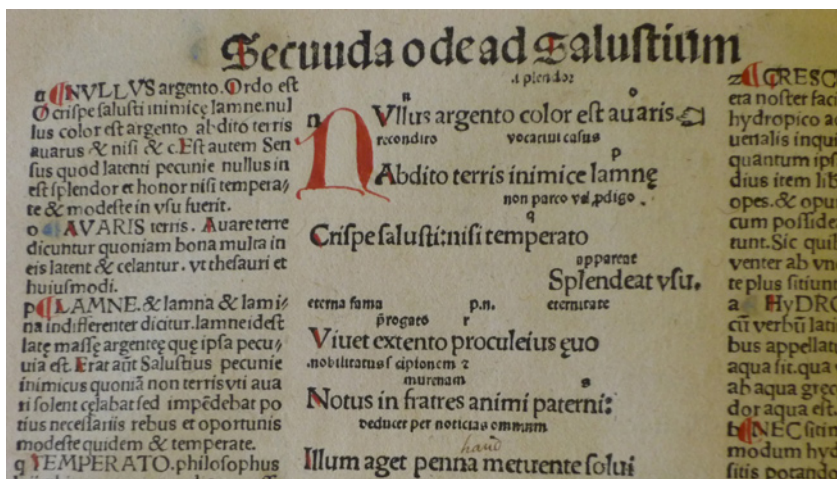 Secuuda ode ad Salustium
n NVLLVS argento. Ordo est
O crispe salusti inimicę lamne. nul
lus color est argento abdito terris
auarus & nisi & c. Est autem Sen
sus quod latenti pecunie nullus in
est splendor et honor nisi tempera
te & modeste in vsu fuerit.
o AVARIS terris. Auare terre
dicuntur quoniam bona multa in
eis latent & celantur. vt thesauri et
huiusmodi.
p LAMNE. & lamna & lami
na indifferenter dicitur. lamne idest
latę massę argenteę quę ipsa pecu
uia est. Erat aūt Salustius pecunie
inimicus quoniā non terris vti aua
ri solent celabat sed impēdebat po
tius necessariis rebus et oportunis
modeste quidem & temperate.
q TEMPERATO. philosophus
splendor
n o
n Vllus argento color est auaris
recondito vocatiui casus
p
Abdito terris inimice lamnę
non parco vel ꝓdigo.
q
Crispe salusti: nisi temperato
appareat
Splendeat vsu.
eterna fama p.n. eternitate
ꝓrogato r
Viuet extento proculeius ęuo
nobilitatus scipionem 2
murenam s
Notus in fratres animi paterni:
deducet per noticias omnium
haud
Illum aget penna metuente solui
z CRESC
era noster fac
hydropico a
uenalis inqui
quantum ips
dius item lib
opes. & opu
cum posside
tunt. Sic qui
venter ab vn
te plus sitiunt
a HyDRO
cū verbū latin
bus appellat
aqua sit. qua
ab aqua gręc
dor aqua est
b NEC sitim
modum hyd
sitis potando